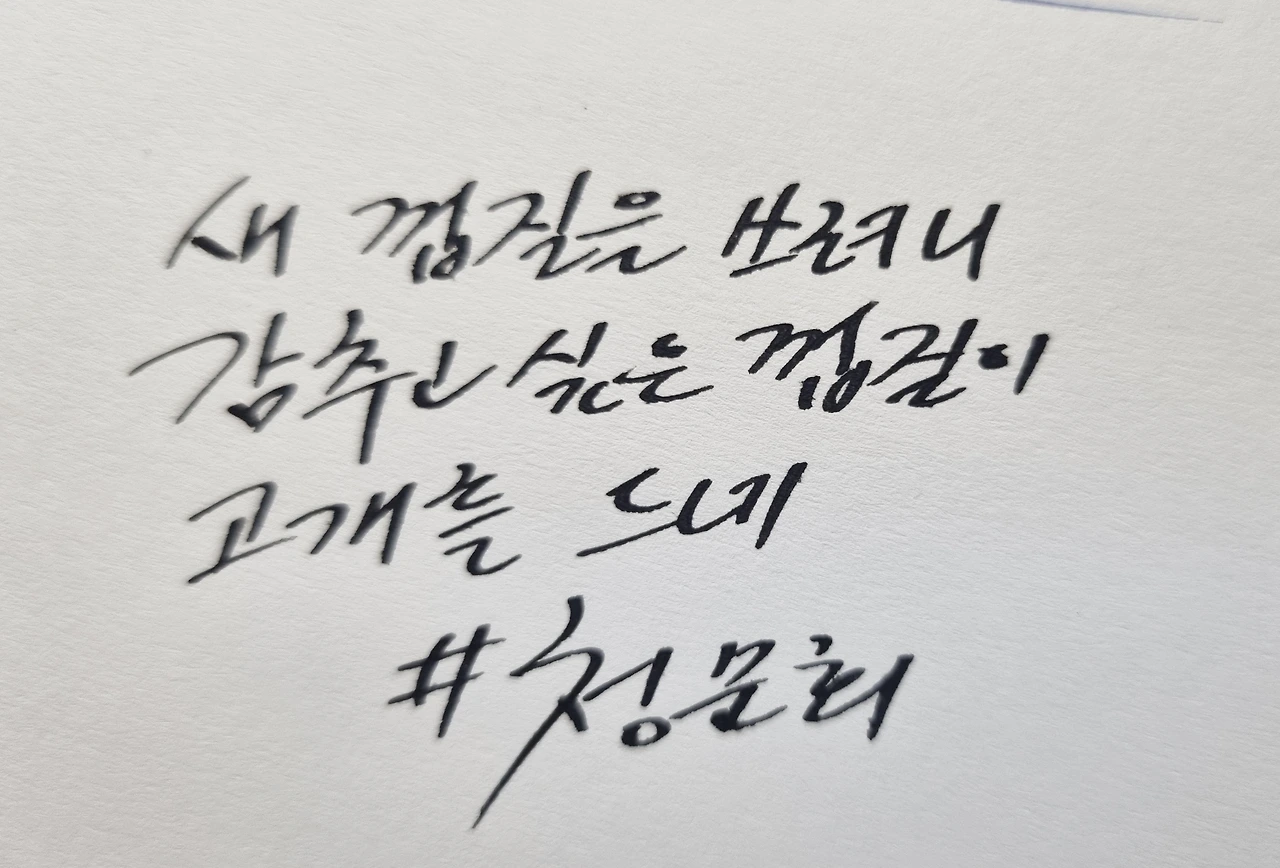 새 껍질을 쓰려니
감추고 싶은 껍질이
고개를 드네
#청문회